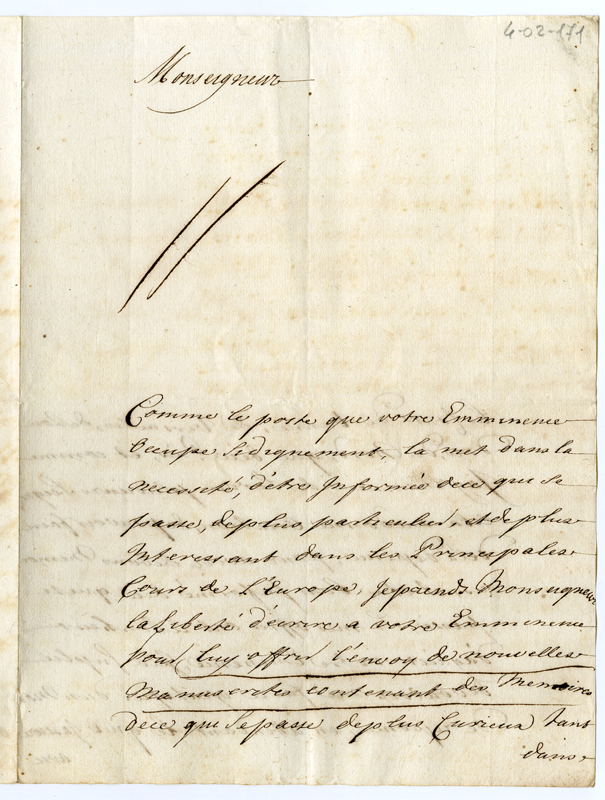 4-02-171
Monseigneur
Comme le poste que votre Emminence
occupe sidignement, la met dans la
necessité, d'être Informée dece qui se
passe, deplus particulier, et deplus
Interessant dans les Principales
Cours de L'Europe, Jeprends Monseigneur
laLiberté d'écrire a votre Emminence
pour luy offrir l'envoy de nouvelles
Manuscrites contenant des Memoires
dece qui Sepasse deplus Curieux tant
dans